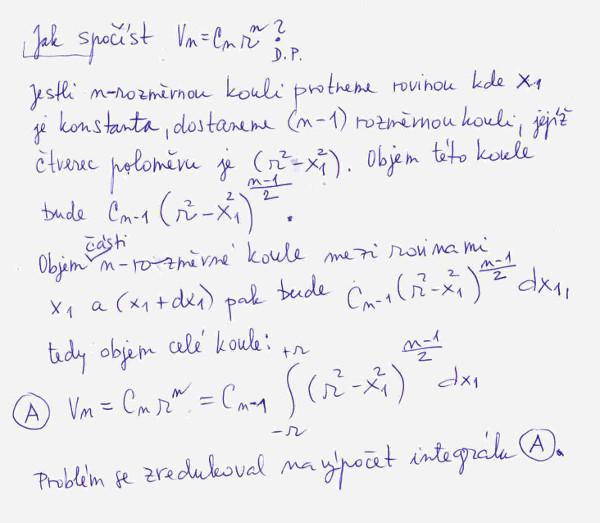 Jak spočíst Vₙ = Cₙ rⁿ ?
D.P.
Jestli n-rozměrnou kouli protneme rovinou kde x₁
je konstanta, dostaneme (n-1) rozměrnou kouli, jejíž
čtverec poloměru je (r²-x₁²). Objem této koule
bude Cₙ₋₁ (r²-x₁²)^((n-1)/2).
Objem části n-rozměrné koule mezi rovinami
x₁ a (x₁+dx₁) pak bude Cₙ₋₁(r²-x₁²)^((n-1)/2) dx₁,
tedy objem celé koule:
(A) Vₙ = Cₙ rⁿ = Cₙ₋₁ ∫_{-r}^{+r} (r²-x₁²)^((n-1)/2) dx₁
Problém se zredukoval na výpočet integrálu (A).